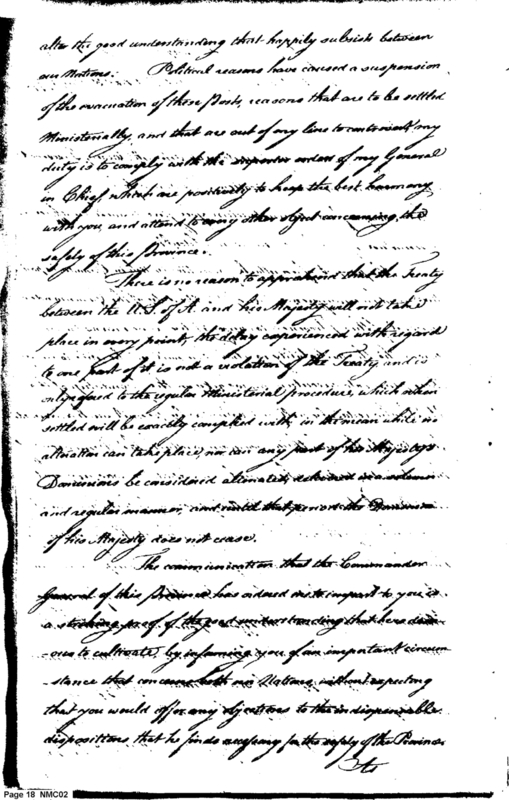 alter the good understanding that happily subsists between
our Nations. Political reasons have caused a suspension
of the evacuation of those Posts, reasons that are to be settled
Ministerially, and that are out of my line to controvert my
duty is to comply with the superior orders of my General
in Chief, which are positively to keep the best harmony
with you and attend to every other object concerning the
safety of this Province.
There is no reason to apprehend that the Treaty
between the U.S. of A. and his Majesty will not take
place in every point, the delay experienced with regard
to one part of it is not a violation of the Treaty and is
only the regular Ministerial procedure, which when
settled will be exactly complied with, in the mean while no
alteration can take place, nor can any part of his Majesty's
Dominions be considered alienated, delivered in a solemn
and regular manner, and until that period the Dominion
of his Majesty does not cease.
The communication that the Commander
General of this Province has ordered me to impart to you is
a striking proof of the good understanding that he is desir-
-ous to cultivate by informing you of an important circum
-stance that concerns both our Nations, without expecting
that you would offer any objections to the indispensable
dispositions that he finds necessary for the safety of the Province
As
Page 18 NMC02